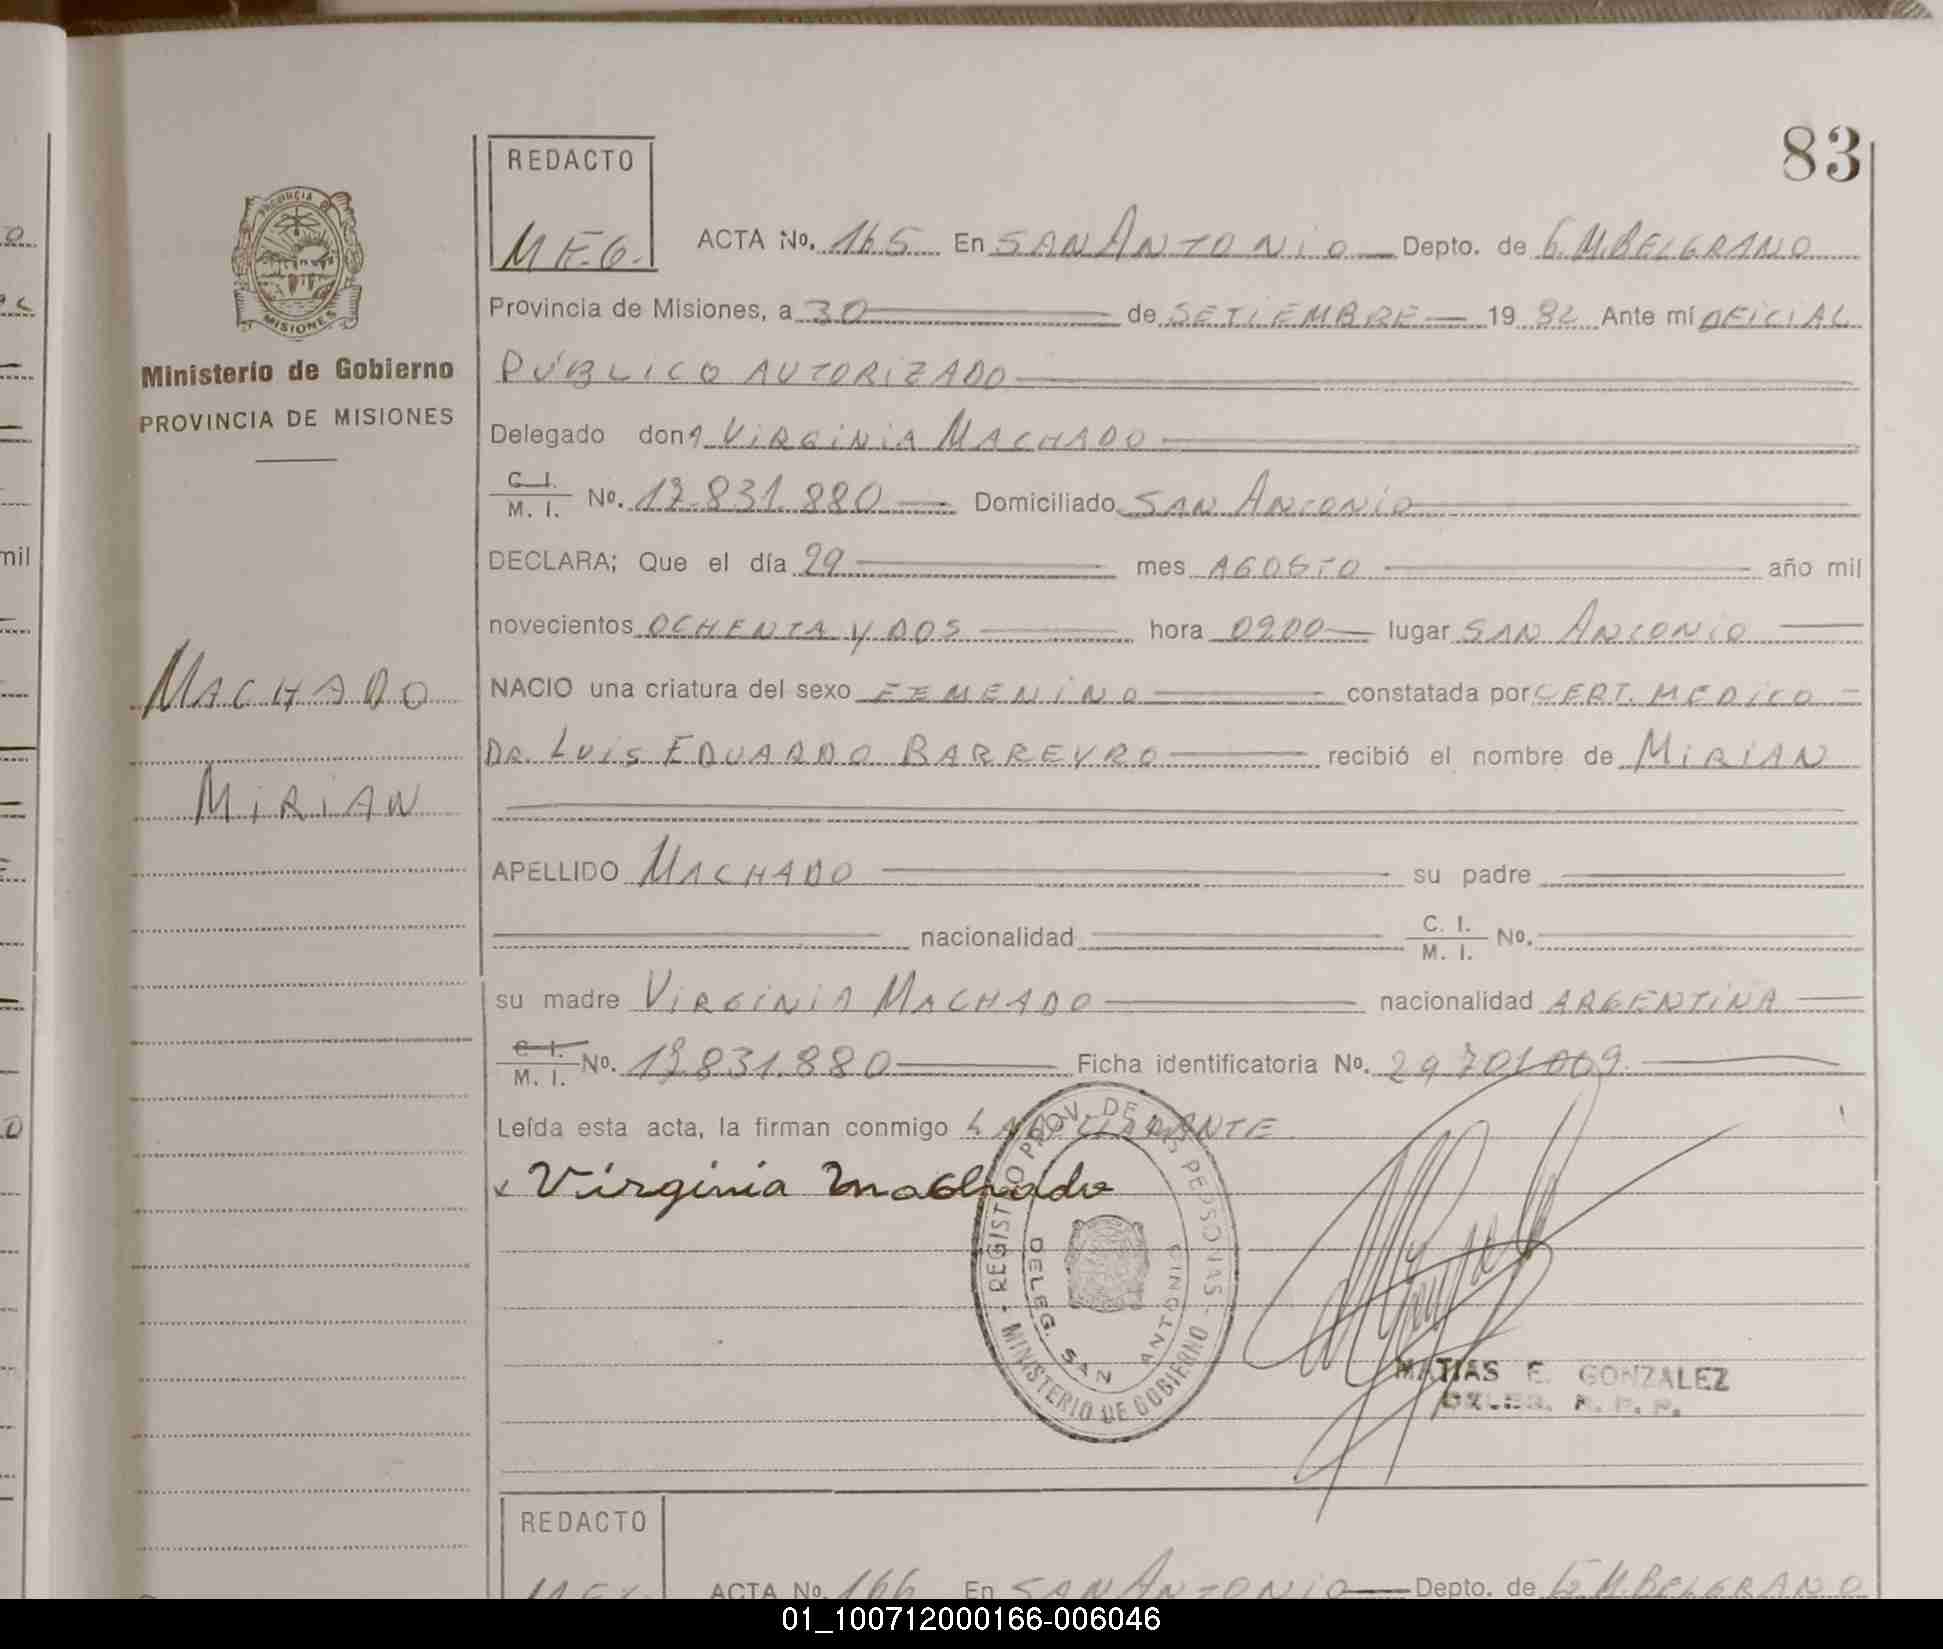 83
REDACTO
M.E.G.
PROVINCIA DE
MISIONES
Ministerio de Gobierno
PROVINCIA DE MISIONES
MACHADO
MIRIAN
ACTA No. 165 En SAN ANTONIO Depto. de G. M. BELGRANO
Provincia de Misiones, a 30 de SETIEMBRE 19 82 Ante mí OFICIAL
PÚBLICO AUTORIZADO
Delegado donA VIRGINIA MACHADO
C. I. / M. I. No. 17.831.880 Domiciliado SAN ANTONIO
DECLARA; Que el día 29 mes AGOSTO año mil
novecientos OCHENTA Y DOS hora 0900 lugar SAN ANTONIO
NACIO una criatura del sexo FEMENINO constatada por CERT. MEDICO
DR. LUIS EDUARDO BARREYRO recibió el nombre de MIRIAN
APELLIDO MACHADO su padre
nacionalidad C. I. / M. I. No.
su madre VIRGINIA MACHADO nacionalidad ARGENTINA
C. I. / M. I. No. 17.831.880 Ficha identificatoria No. 29701009.
Leída esta acta, la firman conmigo LA DECLARANTE
x Virginia Machado
REGISTRO PROV. DE LAS PERSONAS - MINISTERIO DE GOBIERNO
DELEG. SAN ANTONIO
MATIAS E. GONZALEZ
DELEG. R. P. P.
REDACTO
ACTA No. 166 En SAN ANTONIO Depto. de G. M. BELGRANO
mil
01_100712000166-006046